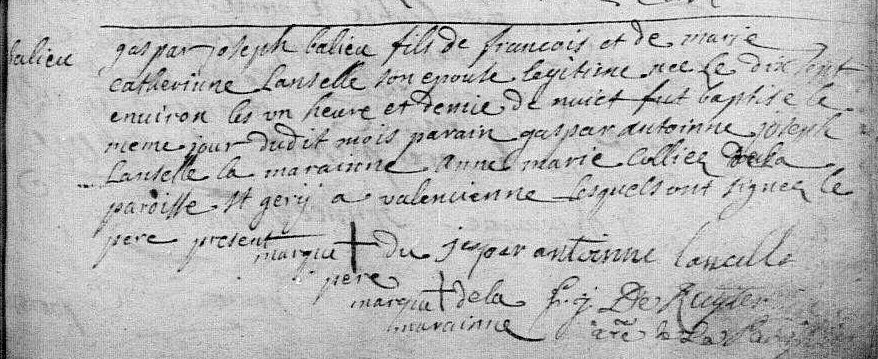 balieu
gaspar joseph balieu fils de francois et de marie
catherinne Lanselle son epouse legitime nee le dix sept
environ les un heure et demie de nuict fut baptise le
meme jour dudit mois parain gaspar antoinne joseph
Lanselle la marainne anne marie Colliez de la
paroisse st gerij a valencienne lesquels ont signez le
pere present
marque du jespar antoinne lanselle
pere
marque de la f. j. De Ruyter
marainne de La